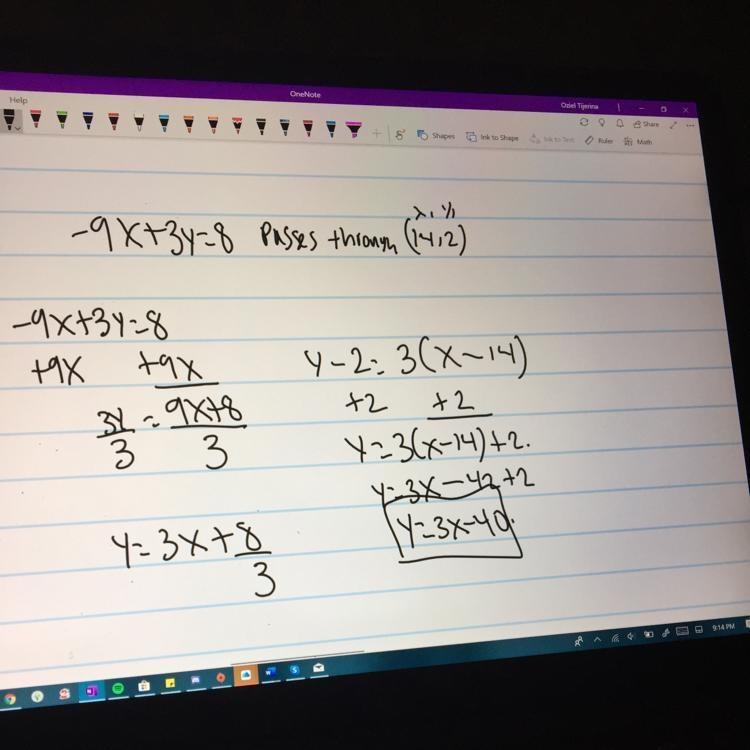 OneNote
Oziel Tijerina
Help
Share
Shapes
Ink to Shape
Ink to Text
Ruler
Math
x, y,
-9x+3y=8 Passes through (14,2)
-9x+3y=8
+9x +9x
3y = 9x+8
3 3
y=3x+8
3
y-2=3(x-14)
+2 +2
y=3(x-14)+2.
y=3x-42+2
y=3x-40.
9:14 PM